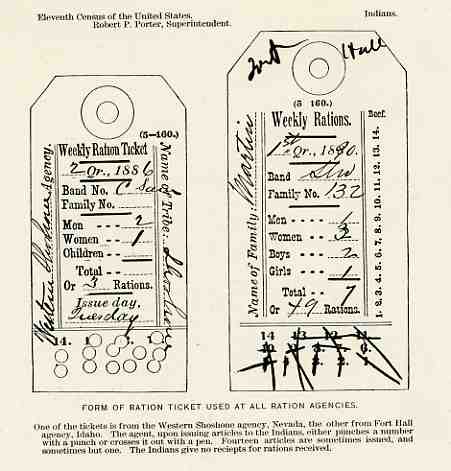 Eleventh Census of the United States.
Robert P. Porter, Superintendent.
Indians.
(5—160.)
Weekly Ration Ticket
2 Qr., 1886
Band No. C
Family No.
Men -- 2
Women -- 1
Children --
Total --
Or 3 Rations.
Issue day,
Tuesday
Western Shoshone Agency.
Name of Tribe: Shoshone
14. 1
Fort Hall
(5 160.)
Weekly Rations.
1st Qr., 1890.
Band Sho
Family No. 132
Men -- 1
Women -- 3
Boys -- 2
Girls -- 1
Total -- 7
Or 49 Rations.
Name of Family Martin
Beef.
1. 2. 3. 4. 5. 6. 7. 8. 9. 10. 11. 12. 13. 14.
14 13 12 11
FORM OF RATION TICKET USED AT ALL RATION AGENCIES.
One of the tickets is from the Western Shoshone agency, Nevada, the other from Fort Hall
agency, Idaho. The agent, upon issuing articles to the Indians, either punches a number
with a punch or crosses it out with a pen. Fourteen articles are sometimes issued, and
sometimes but one. The Indians give no reciepts for rations received.